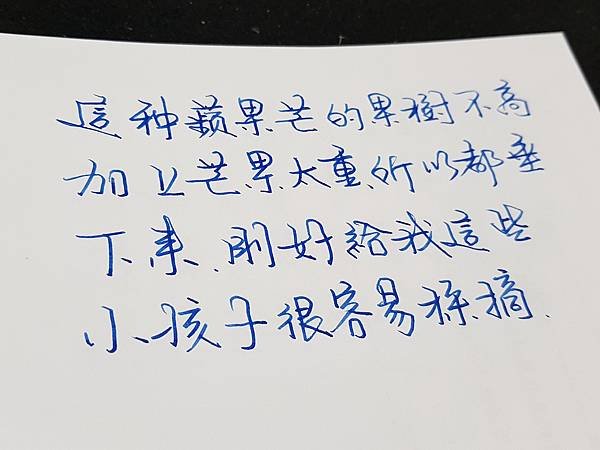 這种蘋果芒的果樹不高
加以芒果太重,所以都垂
下来,刚好給我這些
小孩子很容易採摘.